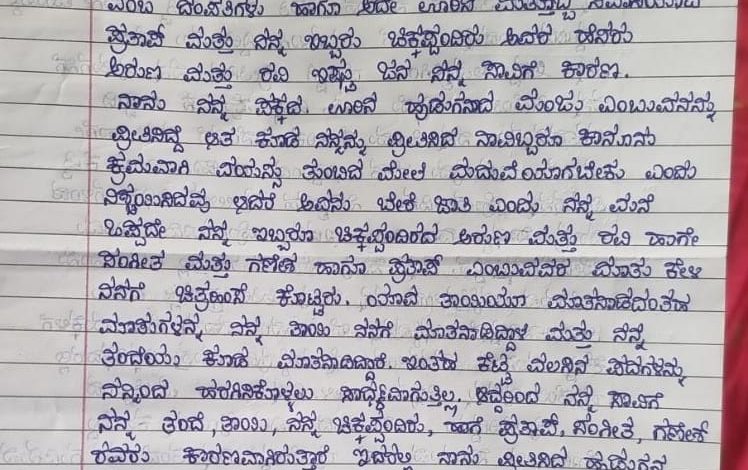 ಎಂಬ ದಂಪತಿಗಳು ಹಾಗೂ ಅದೇ ಊರಿನ
ಪ್ರತಾಪ್ ಮತ್ತು ನನ್ನ ಇಬ್ಬರು ಚಿಕ್ಕಪ್ಪಂದಿರು ಅವರ ಹೆಸರು
ಅರುಣ ಮತ್ತು ರವಿ ಇಷ್ಟು ಜನ ನನ್ನ ಸಾವಿಗೆ ಕಾರಣ.
ನಾನು ನನ್ನ ಪಕ್ಕದ ಊರಿನ ಹುಡುಗನಾದ ಮಂಜು ಎಂಬುವನನ್ನು
ಪ್ರೀತಿಸಿದ್ದೆ ಆತ ಕೂಡ ನನ್ನನ್ನು ಪ್ರೀತಿಸಿದ ನಾವಿಬ್ಬರೂ ಕಾನೂನು
ಕ್ರಮವಾಗಿ ವಯಸ್ಸು ತುಂಬಿದ ಮೇಲೆ ಮದುವೆಯಾಗಬೇಕು ಎಂದು
ನಿಶ್ಚಯಿಸಿದೆವು ಆದರೆ ಅವನು ಬೇರೆ ಜಾತಿ ಎಂದು ನನ್ನ ಮನೆ
ಒಪ್ಪದೇ ನನ್ನ ಇಬ್ಬರೂ ಚಿಕ್ಕಪ್ಪಂದಿರಾದ ಅರುಣ ಮತ್ತು ರವಿ ಹಾಗೇ
ಸಂಗೀತ ಮತ್ತು ಗಣೇಶ ಹಾಗೂ ಪ್ರತಾಪ್ ಎಂಬುವವರ ಮಾತು ಕೇಳಿ
ನನಗೆ ಚಿತ್ರಹಿಂಸೆ ಕೊಟ್ಟರು. ಯಾವ ತಾಯಿಯೂ ಮಾತನಾಡದಂತಹ
ಮಾತುಗಳನ್ನ ನನ್ನ ತಾಯಿ ನನಗೆ ಮಾತನಾಡಿದ್ದಾಳೆ ಮತ್ತು ನನ್ನ
ತಂದೆಯು ಕೂಡ ಮಾತನಾಡಿದ್ದಾರೆ. ಇಂತಹ ಕೆಟ್ಟ ಪದಗಳನ್ನು
ನನ್ನಿಂದ ಸಾಧ್ಯವಾಗುತ್ತಿಲ್ಲ. ಆದ್ದರಿಂದ ನನ್ನ ಸಾವಿಗೆ
ನನ್ನ ತಂದೆ, ತಾಯಿ, ನನ್ನ ಚಿಕ್ಕಪ್ಪಂದಿರು, ಹಾಗೆ ಪ್ರತಾಪ್, ಸಂಗೀತ, ಗಣೇಶ
ರವರು ಕಾರಣವಾಗಿರುತ್ತಾರೆ ಇದರಲ್ಲಿ ನಾನು ಪ್ರೀತಿಸಿದ